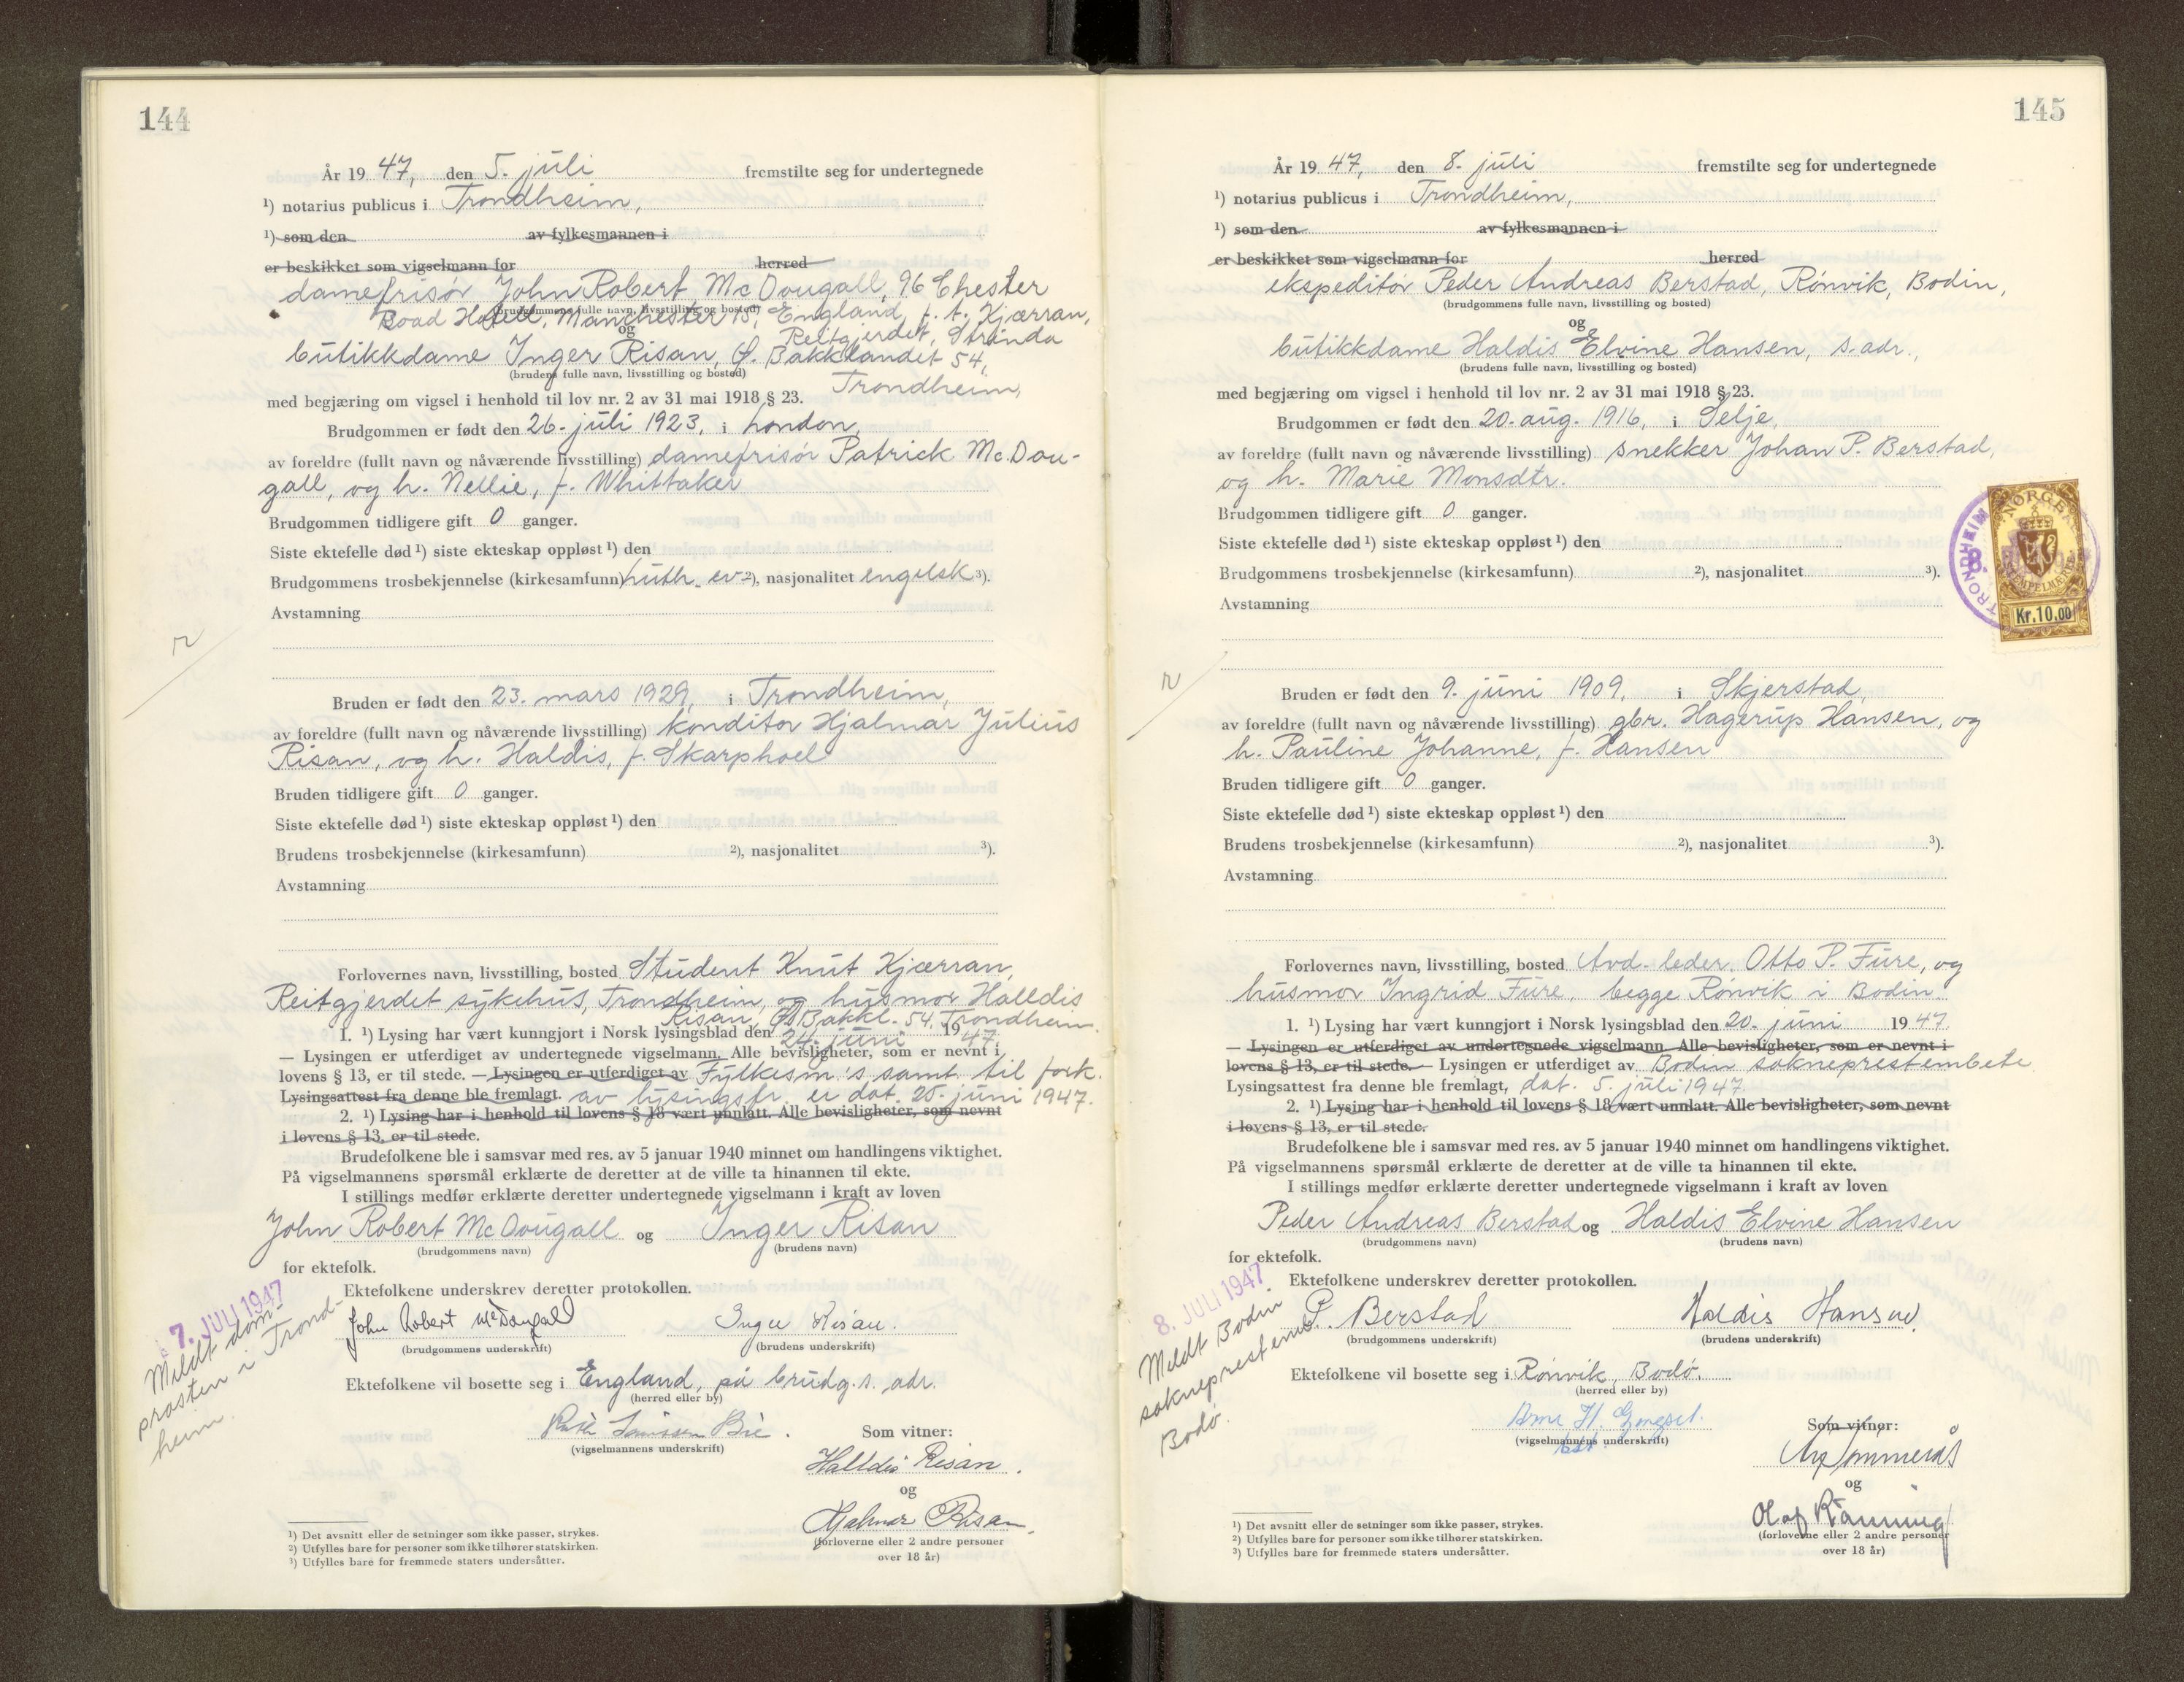 144
År 19 47, den 5. juli fremstilte seg for undertegnede
¹) notarius publicus i Trondheim,
¹) som den av fylkesmannen i
er beskikket som vigselmann for herred
damefrisør John Robert Mc Dougall, 96 Chester
(brudgommens fulle navn, livsstilling og bosted)
Road Hotell, Manchester 15, England, f. t. Kjærran,
og
Reitgjerdet, Strinda
butikkdame Inger Risan, Ø. Bakklandet 54,
(brudens fulle navn, livsstilling og bosted)
Trondheim,
med begjæring om vigsel i henhold til lov nr. 2 av 31 mai 1918 § 23.
Brudgommen er født den 26. juli 1923, i London,
av foreldre (fullt navn og nåværende livsstilling) damefrisør Patrick Mc. Dou-
gall, og h. Nellie, f. Whittaker
Brudgommen tidligere gift 0 ganger.
Siste ektefelle død ¹) siste ekteskap oppløst ¹) den
Brudgommens trosbekjennelse (kirkesamfunn) Luth. ev ²), nasjonalitet engelsk ³).
Avstamning
Bruden er født den 23. mars 1929, i Trondheim,
av foreldre (fullt navn og nåværende livsstilling) konditor Hjalmar Julius
Risan, og h. Haldis, f. Skarphoel
Bruden tidligere gift 0 ganger.
Siste ektefelle død ¹) siste ekteskap oppløst ¹) den
Brudens trosbekjennelse (kirkesamfunn) ²), nasjonalitet ³).
Avstamning
Forlovernes navn, livsstilling, bosted Student Knut Kjærran,
Reitgjerdet sykehus, Trondheim, og husmor Halldis
Risan, Ø. Bakkl. 54, Trondheim.
1. ¹) Lysing har vært kunngjort i Norsk lysingsblad den 24. juni 1947.
— Lysingen er utferdiget av undertegnede vigselmann. Alle bevisligheter, som er nevnt i
lovens § 13, er til stede. — Lysingen er utferdiget av Fylkesm's samt. til fork.
Lysingsattest fra denne ble fremlagt. av lysingsfr. er dat. 25. juni 1947.
2. ¹) Lysing har i henhold til lovens § 18 vært unnlatt. Alle bevisligheter, som nevnt
i lovens § 13, er til stede.
Brudefolkene ble i samsvar med res. av 5 januar 1940 minnet om handlingens viktighet.
På vigselmannens spørsmål erklærte de deretter at de ville ta hinannen til ekte.
I stillings medfør erklærte deretter undertegnede vigselmann i kraft av loven
John Robert Mc Dougall og Inger Risan
(brudgommens navn) (brudens navn)
for ektefolk.
Ektefolkene underskrev deretter protokollen.
7. JULI 1947
Meldt dom-
prosten i Trond-
heim.
John Robert McDougall Inger Risan.
(brudgommens underskrift) (brudens underskrift)
Ektefolkene vil bosette seg i England, på brudg.s. adr.
(herred eller by)
(vigselmannens underskrift) Som vitner:
Halldis Risan.
og
Hjalmar Risan.
(forloverne eller 2 andre personer
over 18 år)
¹) Det avsnitt eller de setninger som ikke passer, strykes.
²) Utfylles bare for personer som ikke tilhører statskirken.
³) Utfylles bare for fremmede staters undersåtter.
145
År 19 47, den 8. juli fremstilte seg for undertegnede
¹) notarius publicus i Trondheim,
¹) som den av fylkesmannen i
er beskikket som vigselmann for herred
ekspeditør Peder Andreas Berstad, Rønvik, Bodin,
(brudgommens fulle navn, livsstilling og bosted)
og
butikkdame Haldis Elvine Hansen, s. adr.,
(brudens fulle navn, livsstilling og bosted)
med begjæring om vigsel i henhold til lov nr. 2 av 31 mai 1918 § 23.
Brudgommen er født den 20. aug. 1916, i Selje,
av foreldre (fullt navn og nåværende livsstilling) snekker Johan P. Berstad,
og h. Marie Monsdtr.
Brudgommen tidligere gift 0 ganger.
Siste ektefelle død ¹) siste ekteskap oppløst ¹) den
Brudgommens trosbekjennelse (kirkesamfunn) ²), nasjonalitet ³).
Avstamning
NORGE
STEMPELMERKE
Kr. 10.00
TRONDHEIM
8.
Bruden er født den 9. juni 1909, i Skjerstad,
av foreldre (fullt navn og nåværende livsstilling) gbr. Hagerup Hansen, og
h. Pauline Johanne, f. Hansen
Bruden tidligere gift 0 ganger.
Siste ektefelle død ¹) siste ekteskap oppløst ¹) den
Brudens trosbekjennelse (kirkesamfunn) ²), nasjonalitet ³).
Avstamning
Forlovernes navn, livsstilling, bosted Avd. leder Otto P. Fure, og
husmor Ingrid Fure, begge Rønvik i Bodin.
1. ¹) Lysing har vært kunngjort i Norsk lysingsblad den 20. juni 1947.
— Lysingen er utferdiget av undertegnede vigselmann. Alle bevisligheter, som er nevnt i
lovens § 13, er til stede. — Lysingen er utferdiget av Bodin sokneprestembete
Lysingsattest fra denne ble fremlagt, dat. 5. juli 1947
2. ¹) Lysing har i henhold til lovens § 18 vært unnlatt. Alle bevisligheter, som nevnt
i lovens § 13, er til stede.
Brudefolkene ble i samsvar med res. av 5 januar 1940 minnet om handlingens viktighet.
På vigselmannens spørsmål erklærte de deretter at de ville ta hinannen til ekte.
I stillings medfør erklærte deretter undertegnede vigselmann i kraft av loven
Peder Andreas Berstad og Haldis Elvine Hansen
(brudgommens navn) (brudens navn)
for ektefolk.
Ektefolkene underskrev deretter protokollen.
8. JULI 1947
Meldt Bodin
sokneprestemb.
Bodø.
P. Berstad Haldis Hansen.
(brudgommens underskrift) (brudens underskrift)
Ektefolkene vil bosette seg i Rønvik, Bodø.
(herred eller by)
(vigselmannens underskrift) Som vitner:
og
Olaf Rønning
(forloverne eller 2 andre personer
over 18 år)
¹) Det avsnitt eller de setninger som ikke passer, strykes.
²) Utfylles bare for personer som ikke tilhører statskirken.
³) Utfylles bare for fremmede staters undersåtter.